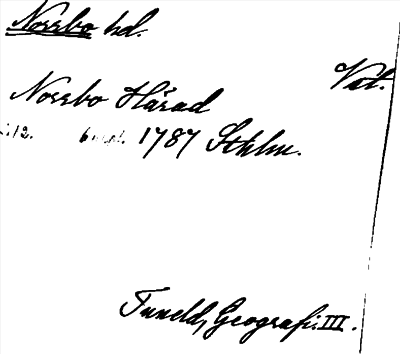 Norrbo hd.
Vstm.
Norrbo Härad
1787 Sthlm.
Tuneld, Geografi. III.